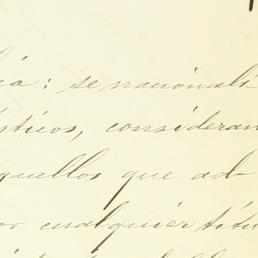 ia: se nacionali
ísticos, consideran
quellos que ad-
or cualquier títu